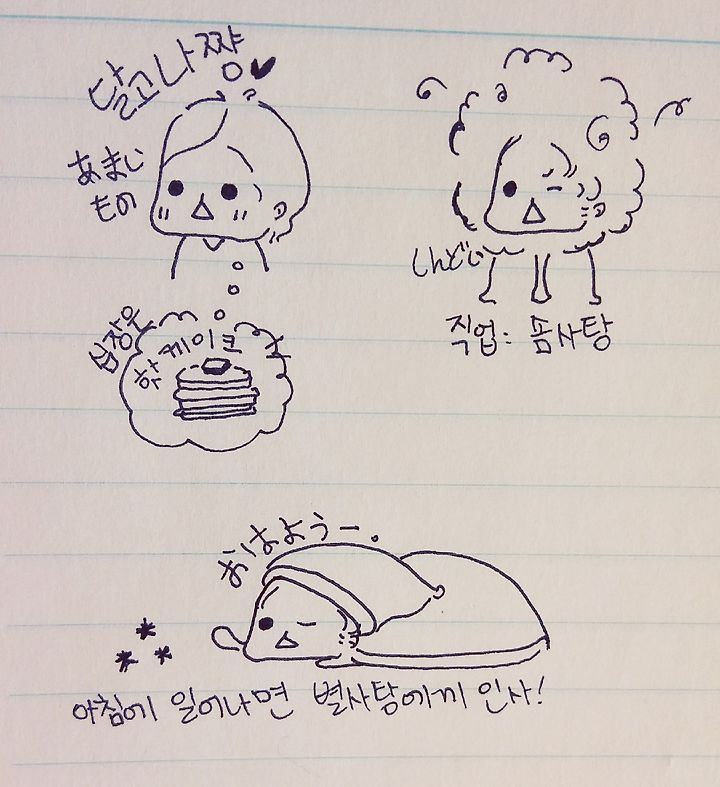 달고나쨩
あまい
もの
심장은
핫케이크
しんどい
직업: 솜사탕
おはようー。
아침에 일어나면 별사탕에게 인사!